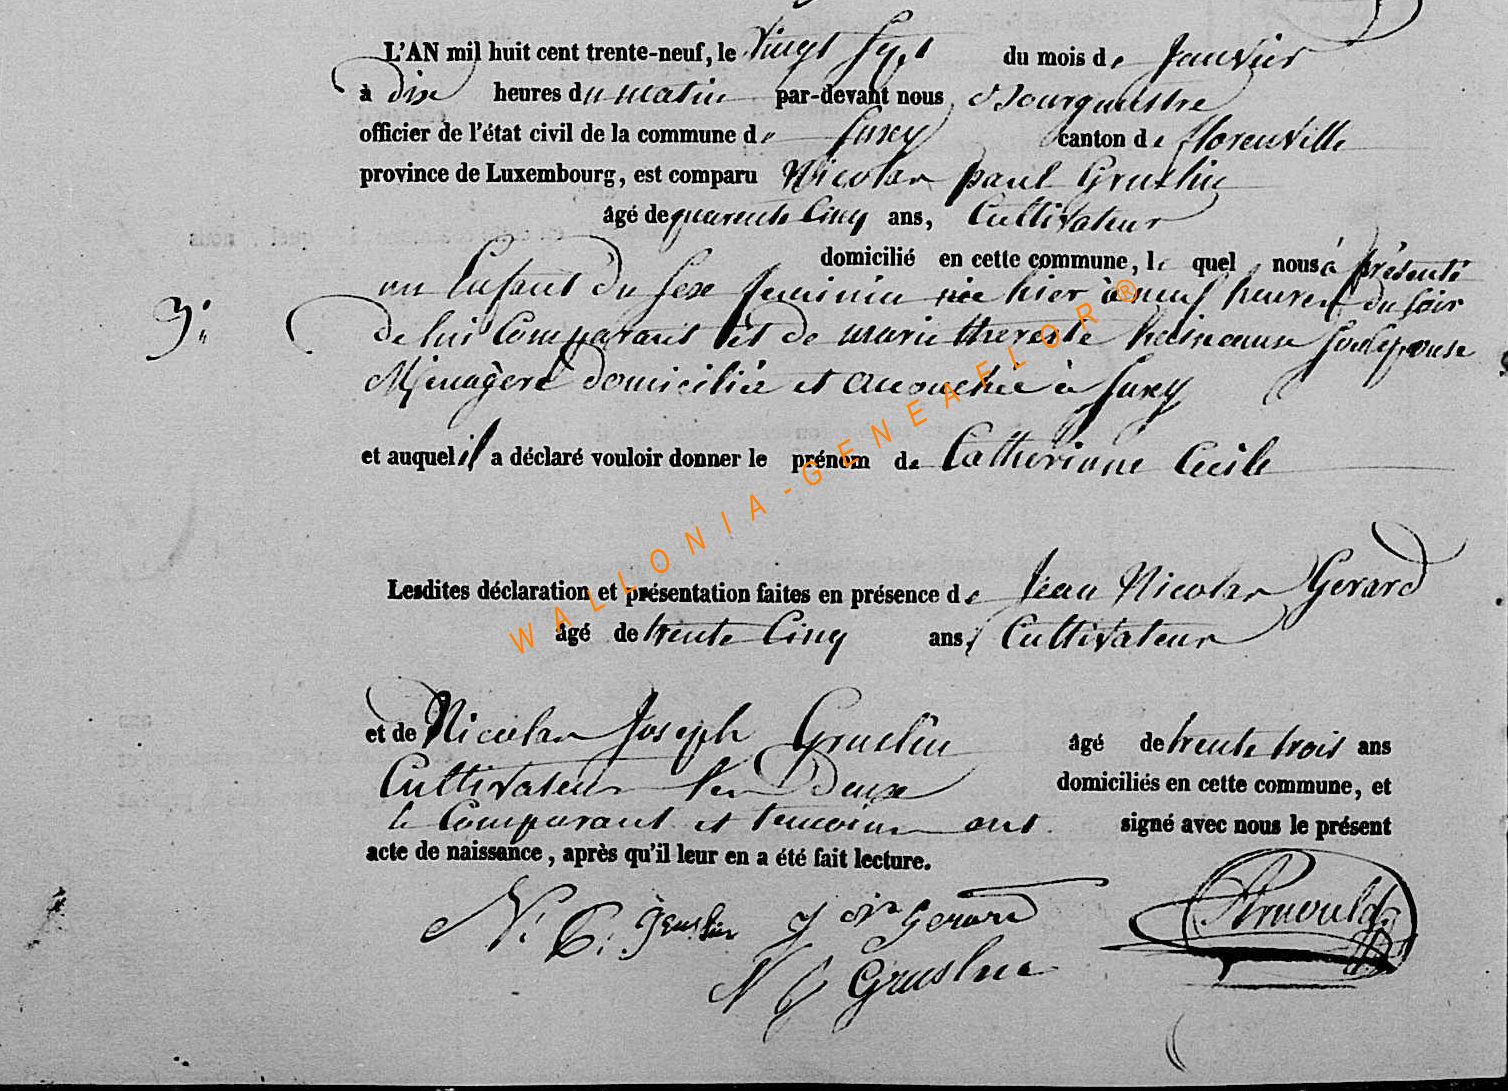 L'AN mil huit cent trente-neuf, le vingt sept du mois de Janvier
à dix heures du matin par-devant nous Bourgmestre
officier de l'état civil de la commune de Suxy canton de florenville
province de Luxembourg, est comparu Nicolas paul Gruslin
âgé de quarente Cinq ans, Cultivateur
domicilié en cette commune, le quel nous à présenté
un Enfant du sexe feminin née hier à neuf heures du soir
3.
de lui Comparant et de marie therese son Epouse
Ménagère domiciliée et accouchée à Suxy
et auquel il a déclaré vouloir donner le prénom de Catherinne Cecile
WALLONIA-GENEAFLOR®
Lesdites déclaration et présentation faites en présence de Jean Nicolas Gerard
âgé de trente Cinq ans, Cultivateur
et de Nicolas Joseph Gruslin âgé de trente trois ans
Cultivateur les Deux domiciliés en cette commune, et
le Comparant et temoins ont signé avec nous le présent
acte de naissance, après qu'il leur en a été fait lecture.
N. P. gruslin J N Gerard Arnould
N J Gruslin